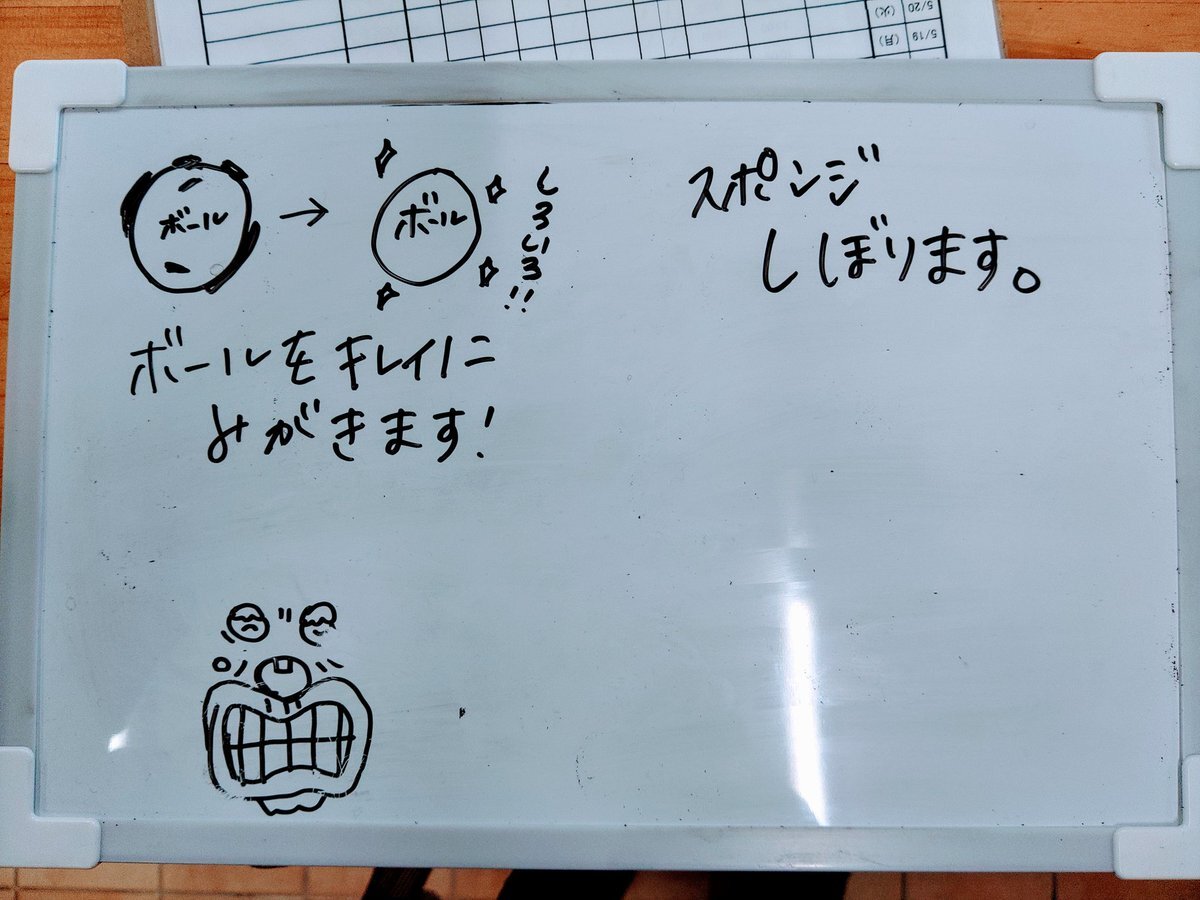 5/20
(火)
5/19
(月)
ボール
→
ボール
しろいろ!!
ボールをキレイに
みがきます!
スポンジ
しぼります。